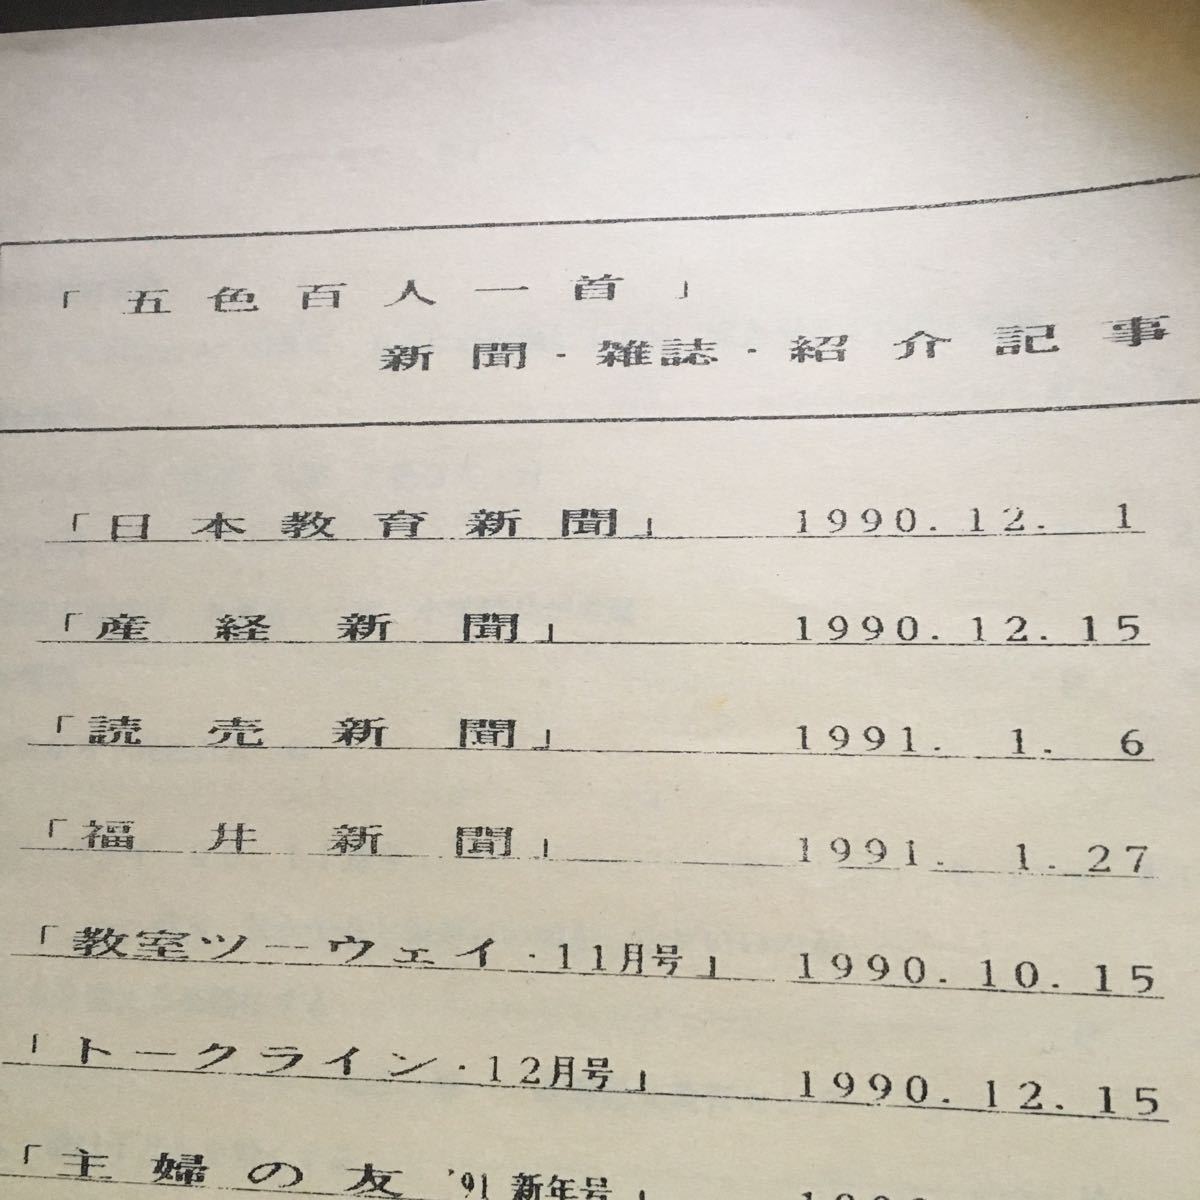 「五色百人一首」
新聞・雑誌・紹介記事
「日本教育新聞」 1990.12. 1
「産経新聞」 1990.12.15
「読売新聞」 1991. 1. 6
「福井新聞」 1991. 1.27
「教室ツーウェイ・11月号」 1990.10.15
「トークライン・12月号」 1990.12.15
「主婦の友 '91新年号」